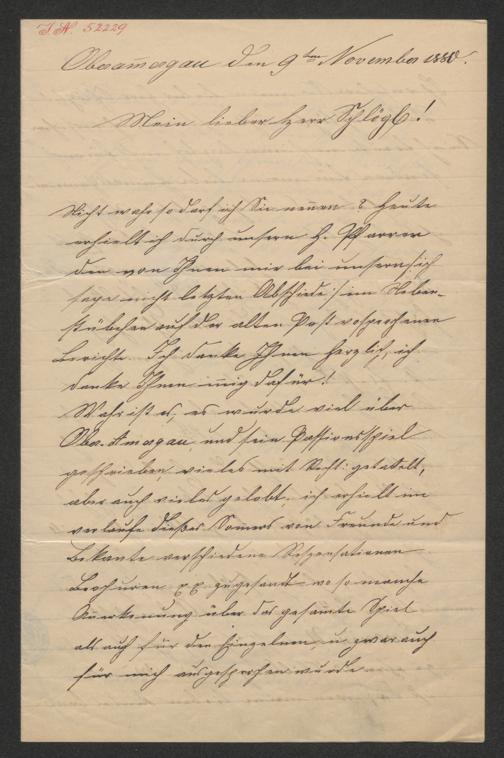 I.N. 52229
Oberam̅ergau den 9ten November 1880.
Mein lieber Herr Schlögl!
Nicht wahr so darf ich Sie nennen? Heute
erhielt ich durch unsern H. Pfarrer
den von Ihnen mir bei unserm, ich
sage nicht letzten Abschiede :/ im Neben-
stübchen auf der alten Post versprochenen
Berichte. Ich danke Ihnen herzlich, ich
danke Ihnen in̅ig dafür!
Wahr ist es, es wurde viel über
Ober-Amergau und sein Passionsspiel
geschrieben, vieles mit Recht: getadelt,
aber auch vieles gelobt. ich erhielt im
verlaufe dieses Som̅ers von Freunde und
Bekan̅te verschiedene
Broschuren xx zugesandt wo so manche
Anerkenung über das gesam̅te Spiel
als auch für den Einzelnen, u zwar auch
für mich ausgesprochen wurde